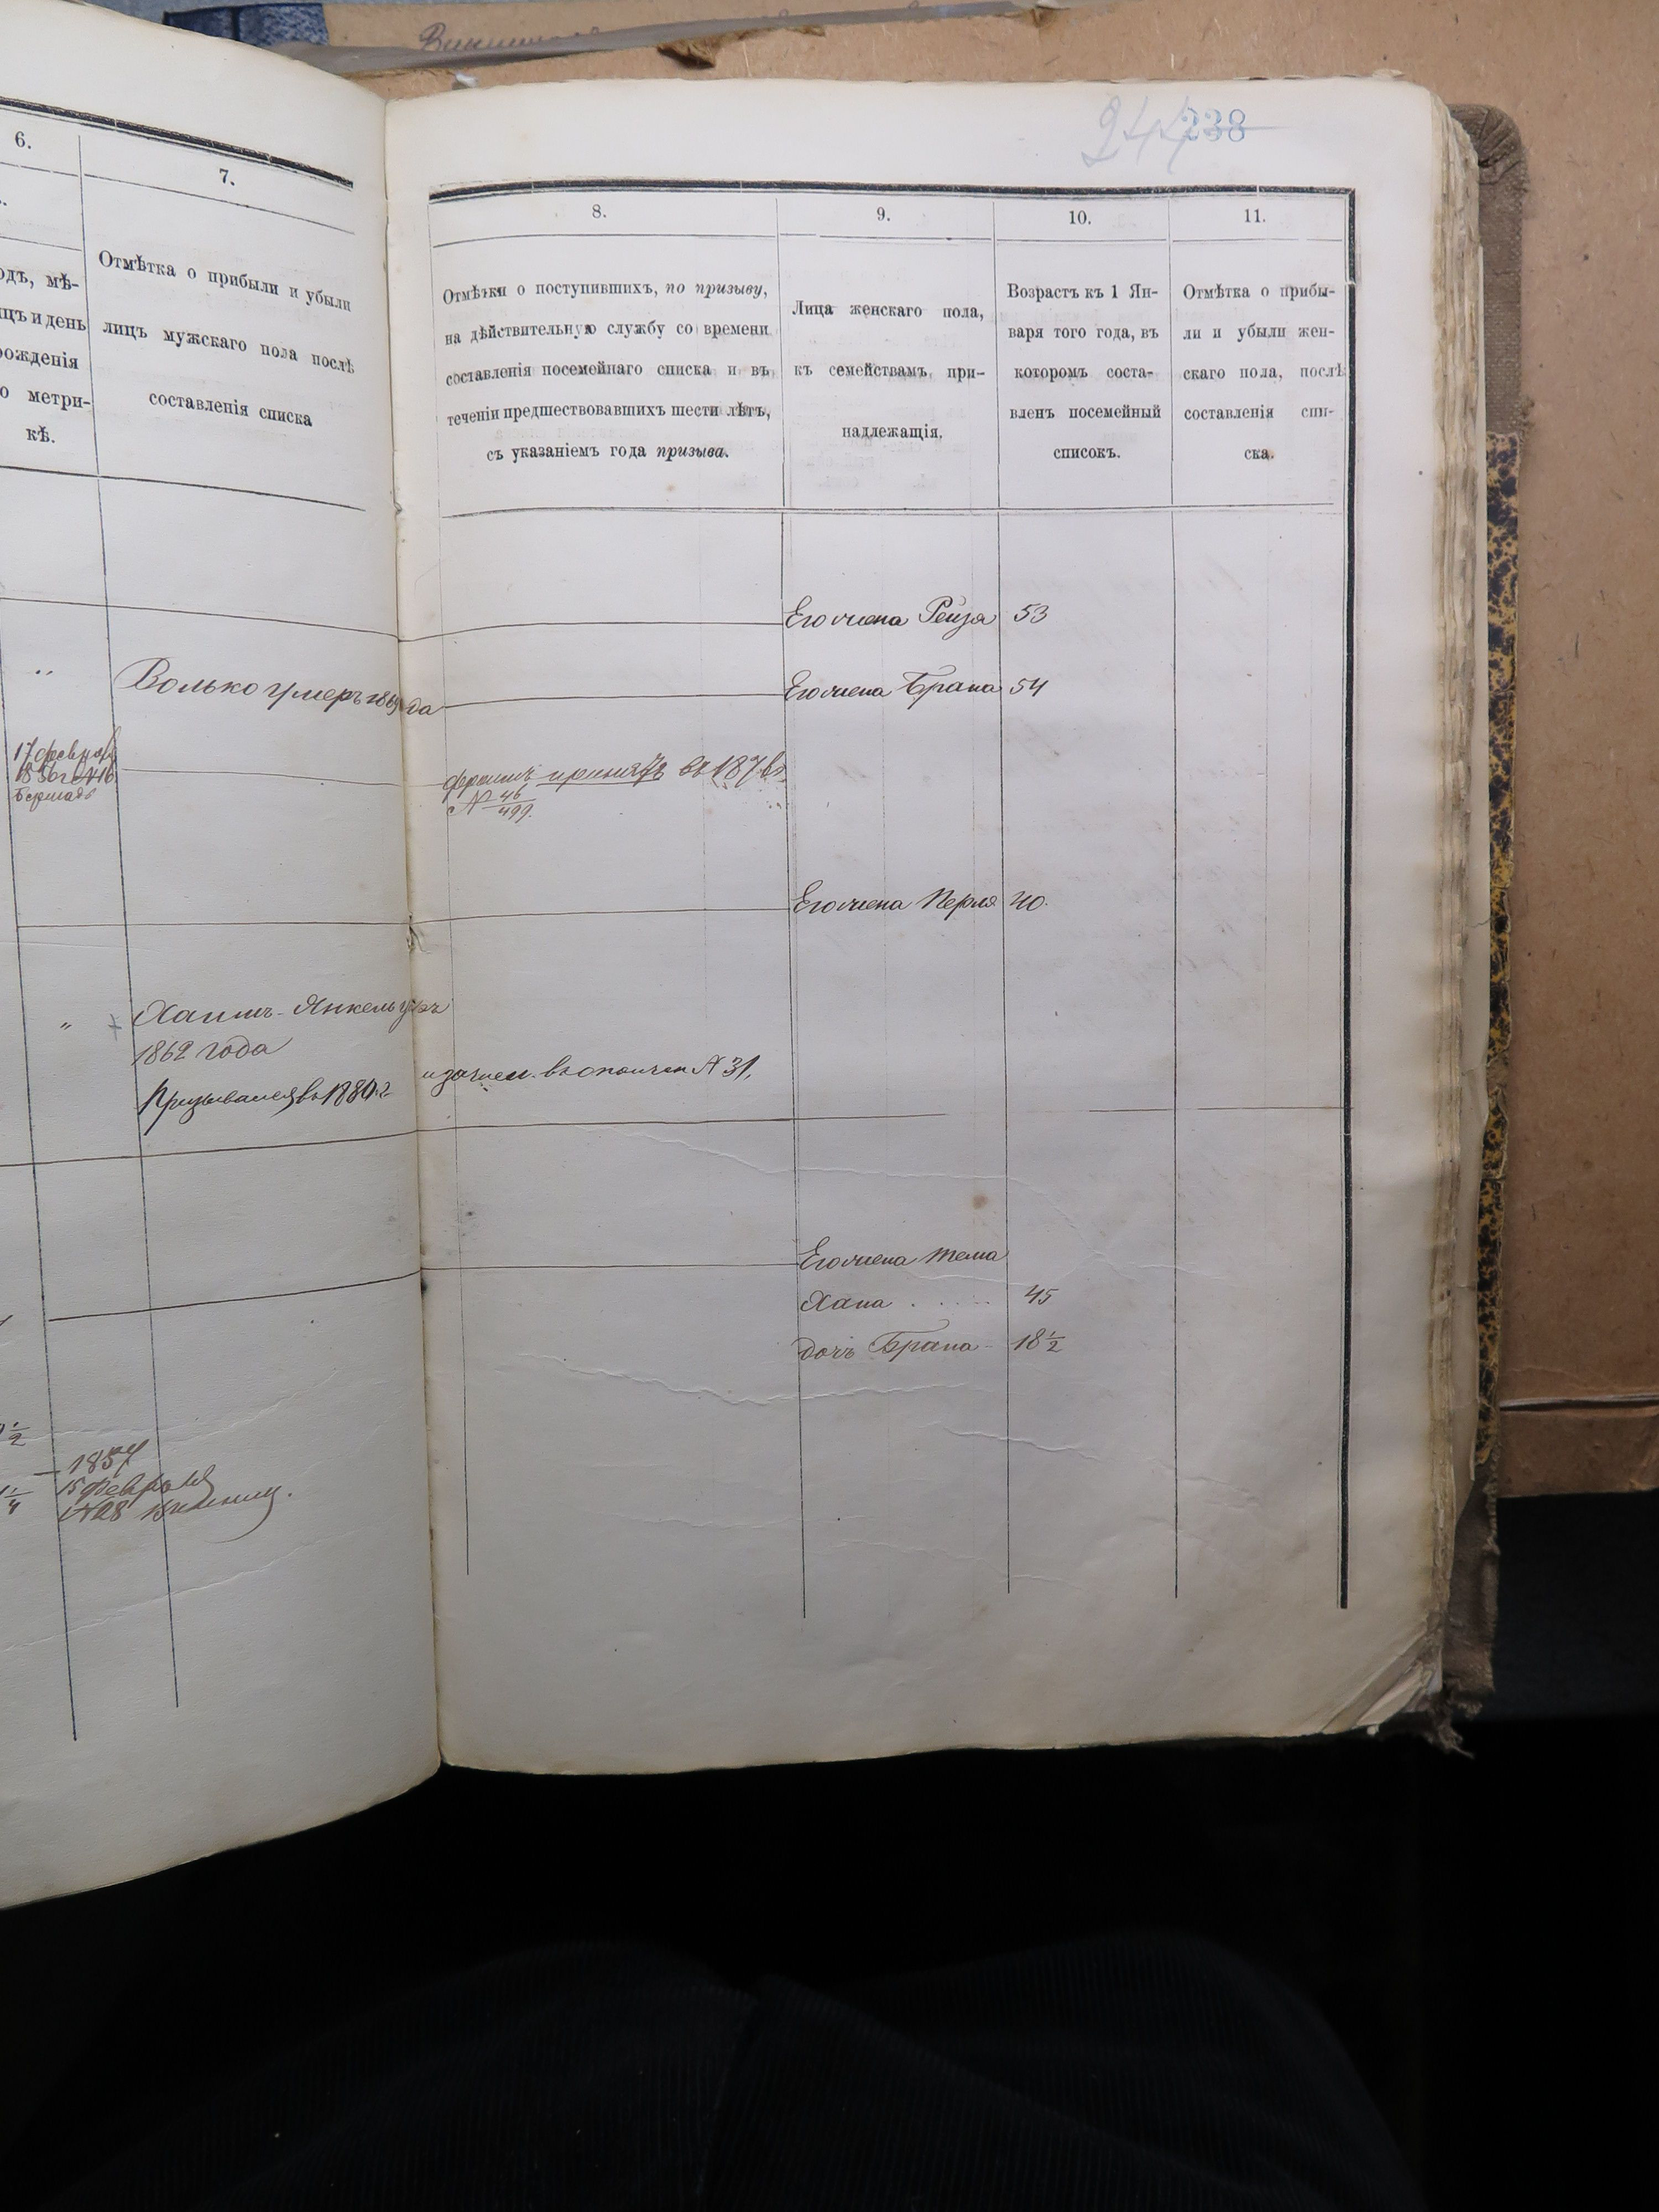 244 238
6.
7.
одъ, мѣ-
цъ и день
рожденія
о метри-
кѣ.
Отмѣтка о прибыли и убыли
лицъ мужскаго пола послѣ
составленія списка
8.
9.
10.
11.
Отмѣтки о поступившихъ, по призыву,
на дѣйствительную службу со времени
составленія посемейнаго списка и въ
теченіи предшествовавшихъ шести лѣтъ,
съ указаніемъ года призыва.
Лица женскаго пола,
къ семействамъ при-
надлежащія.
Возрастъ къ 1 Ян-
варя того года, въ
которомъ соста-
вленъ посемейный
списокъ.
Отмѣтка о прибы-
ли и убыли жен-
скаго пола, послѣ
составленія спи-
ска.
Его жена Рейзя 53
Волько умеръ
Его жена Брана 54
17 февраля
Бершадь
принятъ въ 187
№ 46/499.
Его жена Перля 40.
Хаимъ-Янкель
1862 года
Призывался въ 1880 г. и зачисл. въ ополчен № 31,
Его жена Тема
Хана . . . . 45
дочь Брана - 18 1/2
1/2
1857
1/4 15 Февраля